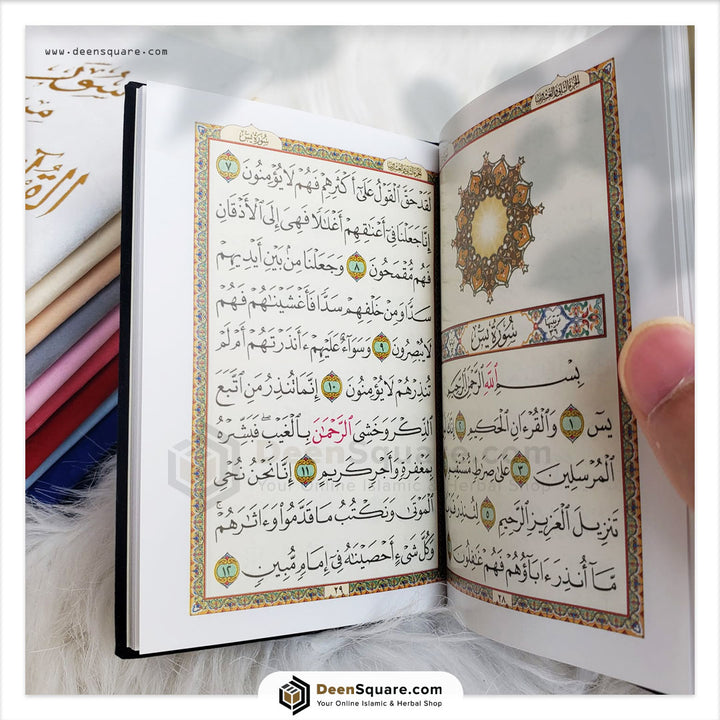 www.deensquare.com
سُورَةُ يسٓ
الجزء الثاني والعشرون
سُورَةُ يسٓ
بِسْمِ اللَّهِ الرَّحْمَٰنِ الرَّحِيمِ
يسٓ ١ وَالْقُرْءَانِ الْحَكِيمِ ٢
الْمُرْسَلِينَ ٣ عَلَىٰ صِرَٰطٍ مُّسْتَقِيمٍ
تَنزِيلَ الْعَزِيزِ الرَّحِيمِ ٥ لِتُنذِرَ
مَّآ أُنذِرَ ءَابَآؤُهُمْ فَهُمْ غَٰفِلُونَ
٢٨
لَقَدْ حَقَّ الْقَوْلُ عَلَىٰٓ أَكْثَرِهِمْ فَهُمْ لَا يُؤْمِنُونَ ٧
إِنَّا جَعَلْنَا فِىٓ أَعْنَٰقِهِمْ أَغْلَٰلًا فَهِىَ إِلَى الْأَذْقَانِ
فَهُم مُّقْمَحُونَ ٨ وَجَعَلْنَا مِنۢ بَيْنِ أَيْدِيهِمْ
سَدًّا وَمِنْ خَلْفِهِمْ سَدًّا فَأَغْشَيْنَٰهُمْ فَهُمْ
لَا يُبْصِرُونَ ٩ وَسَوَآءٌ عَلَيْهِمْ ءَأَنذَرْتَهُمْ أَمْ لَمْ
تُنذِرْهُمْ لَا يُؤْمِنُونَ ١٠ إِنَّمَا تُنذِرُ مَنِ اتَّبَعَ
الذِّكْرَ وَخَشِىَ الرَّحْمَٰنَ بِالْغَيْبِ فَبَشِّرْهُ
بِمَغْفِرَةٍ وَأَجْرٍ كَرِيمٍ ١١ إِنَّا نَحْنُ نُحْىِ
الْمَوْتَىٰ وَنَكْتُبُ مَا قَدَّمُوا۟ وَءَاثَٰرَهُمْ ۚ
وَكُلَّ شَىْءٍ أَحْصَيْنَٰهُ فِىٓ إِمَامٍ مُّبِينٍ ١٢
٢٩
DeenSquare.com
Your Online Islamic & Herbal Shop
DeenSquare.com
Your Online Islamic & Herbal Shop